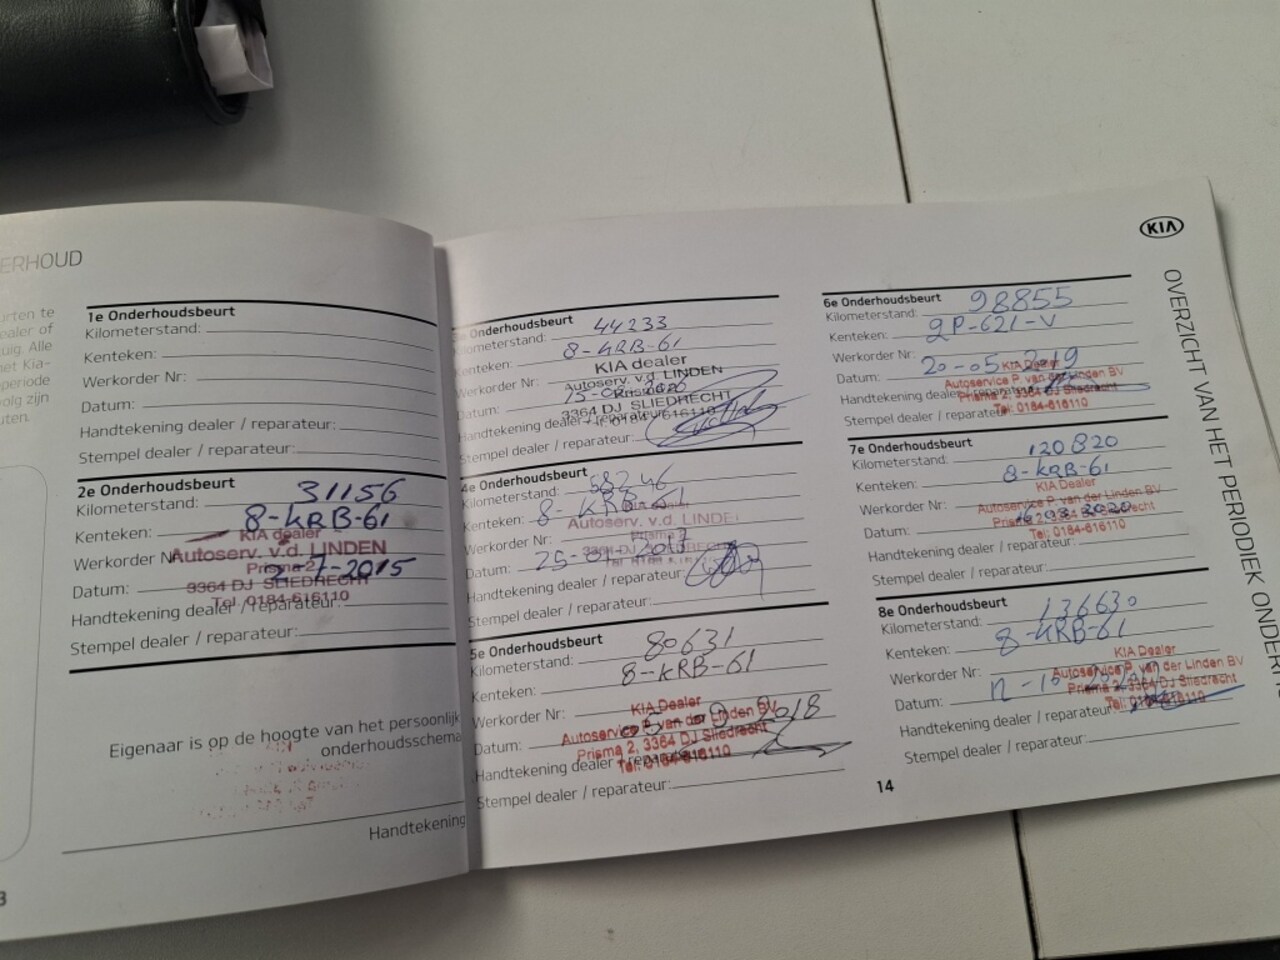 ERHOUD
urten te
ealer of
uig. Alle
net Kia-
periode
volg zijn
uten.
1e Onderhoudsbeurt
Kilometerstand:
Kenteken:
Werkorder Nr:
Datum:
Handtekening dealer / reparateur:
Stempel dealer / reparateur:
2e Onderhoudsbeurt
Kilometerstand: 31156
Kenteken: 8-KRB-61
KIA dealer
Werkorder Nr
Autoserv. v.d. LINDEN
Prisma 2
Datum: 7-2015
3364 DJ SLIEDRECHT
Handtekening dealer / reparateur:
Tel. 0184-616110
Stempel dealer / reparateur:
Eigenaar is op de hoogte van het persoonlijk
onderhoudsschema
Handtekening
3
Onderhoudsbeurt
Kilometerstand: 44233
Kenteken: 8-KRB-61
KIA dealer
Werkorder Nr:
Autoserv. v.d. LINDEN
Datum:
3364 DJ SLIEDRECHT
Handtekening dealer / reparateur
Stempel dealer / reparateur:
4e Onderhoudsbeurt
Kilometerstand: 58246
Kenteken: 8-KRB-61
Autoserv. v.d. LINDE
Werkorder Nr:
Datum: 25-01-2017
Handtekening dealer / reparateur:
Stempel dealer / reparateur:
5e Onderhoudsbeurt
Kilometerstand: 80631
Kenteken: 8-KRB-61
KIA Dealer
Werkorder Nr:
Autoservice P. van der Linden BV
Datum: 2018
Prisma 2, 3364 DJ Sliedrecht
Handtekening dealer / reparateur
Tel: 0184-616110
Stempel dealer / reparateur:
KIA
6e Onderhoudsbeurt
Kilometerstand: 98855
Kenteken: 9P-621-V
Werkorder Nr:
Datum: 20-05-2019
KIA Dealer
Autoservice P. van der Linden BV
Handtekening dealer / reparateur
Prisma 2, 3364 DJ Sliedrecht
Stempel dealer / reparateur
Tel: 0184-616110
7e Onderhoudsbeurt
Kilometerstand: 120820
Kenteken: 8-KRB-61
KIA Dealer
Werkorder Nr:
Autoservice P. van der Linden BV
Datum:
Prisma 2, 3364 DJ Sliedrecht
Tel: 0184-616110
Handtekening dealer / reparateur:
Stempel dealer / reparateur:
8e Onderhoudsbeurt
Kilometerstand: 136630
Kenteken: 8-KRB-61
KIA Dealer
Werkorder Nr:
Autoservice P. van der Linden BV
Datum:
Prisma 2, 3364 DJ Sliedrecht
Tel: 0184-616110
Handtekening dealer / reparateur
Stempel dealer / reparateur:
14
OVERZICHT VAN HET PERIODIEK ONDERH